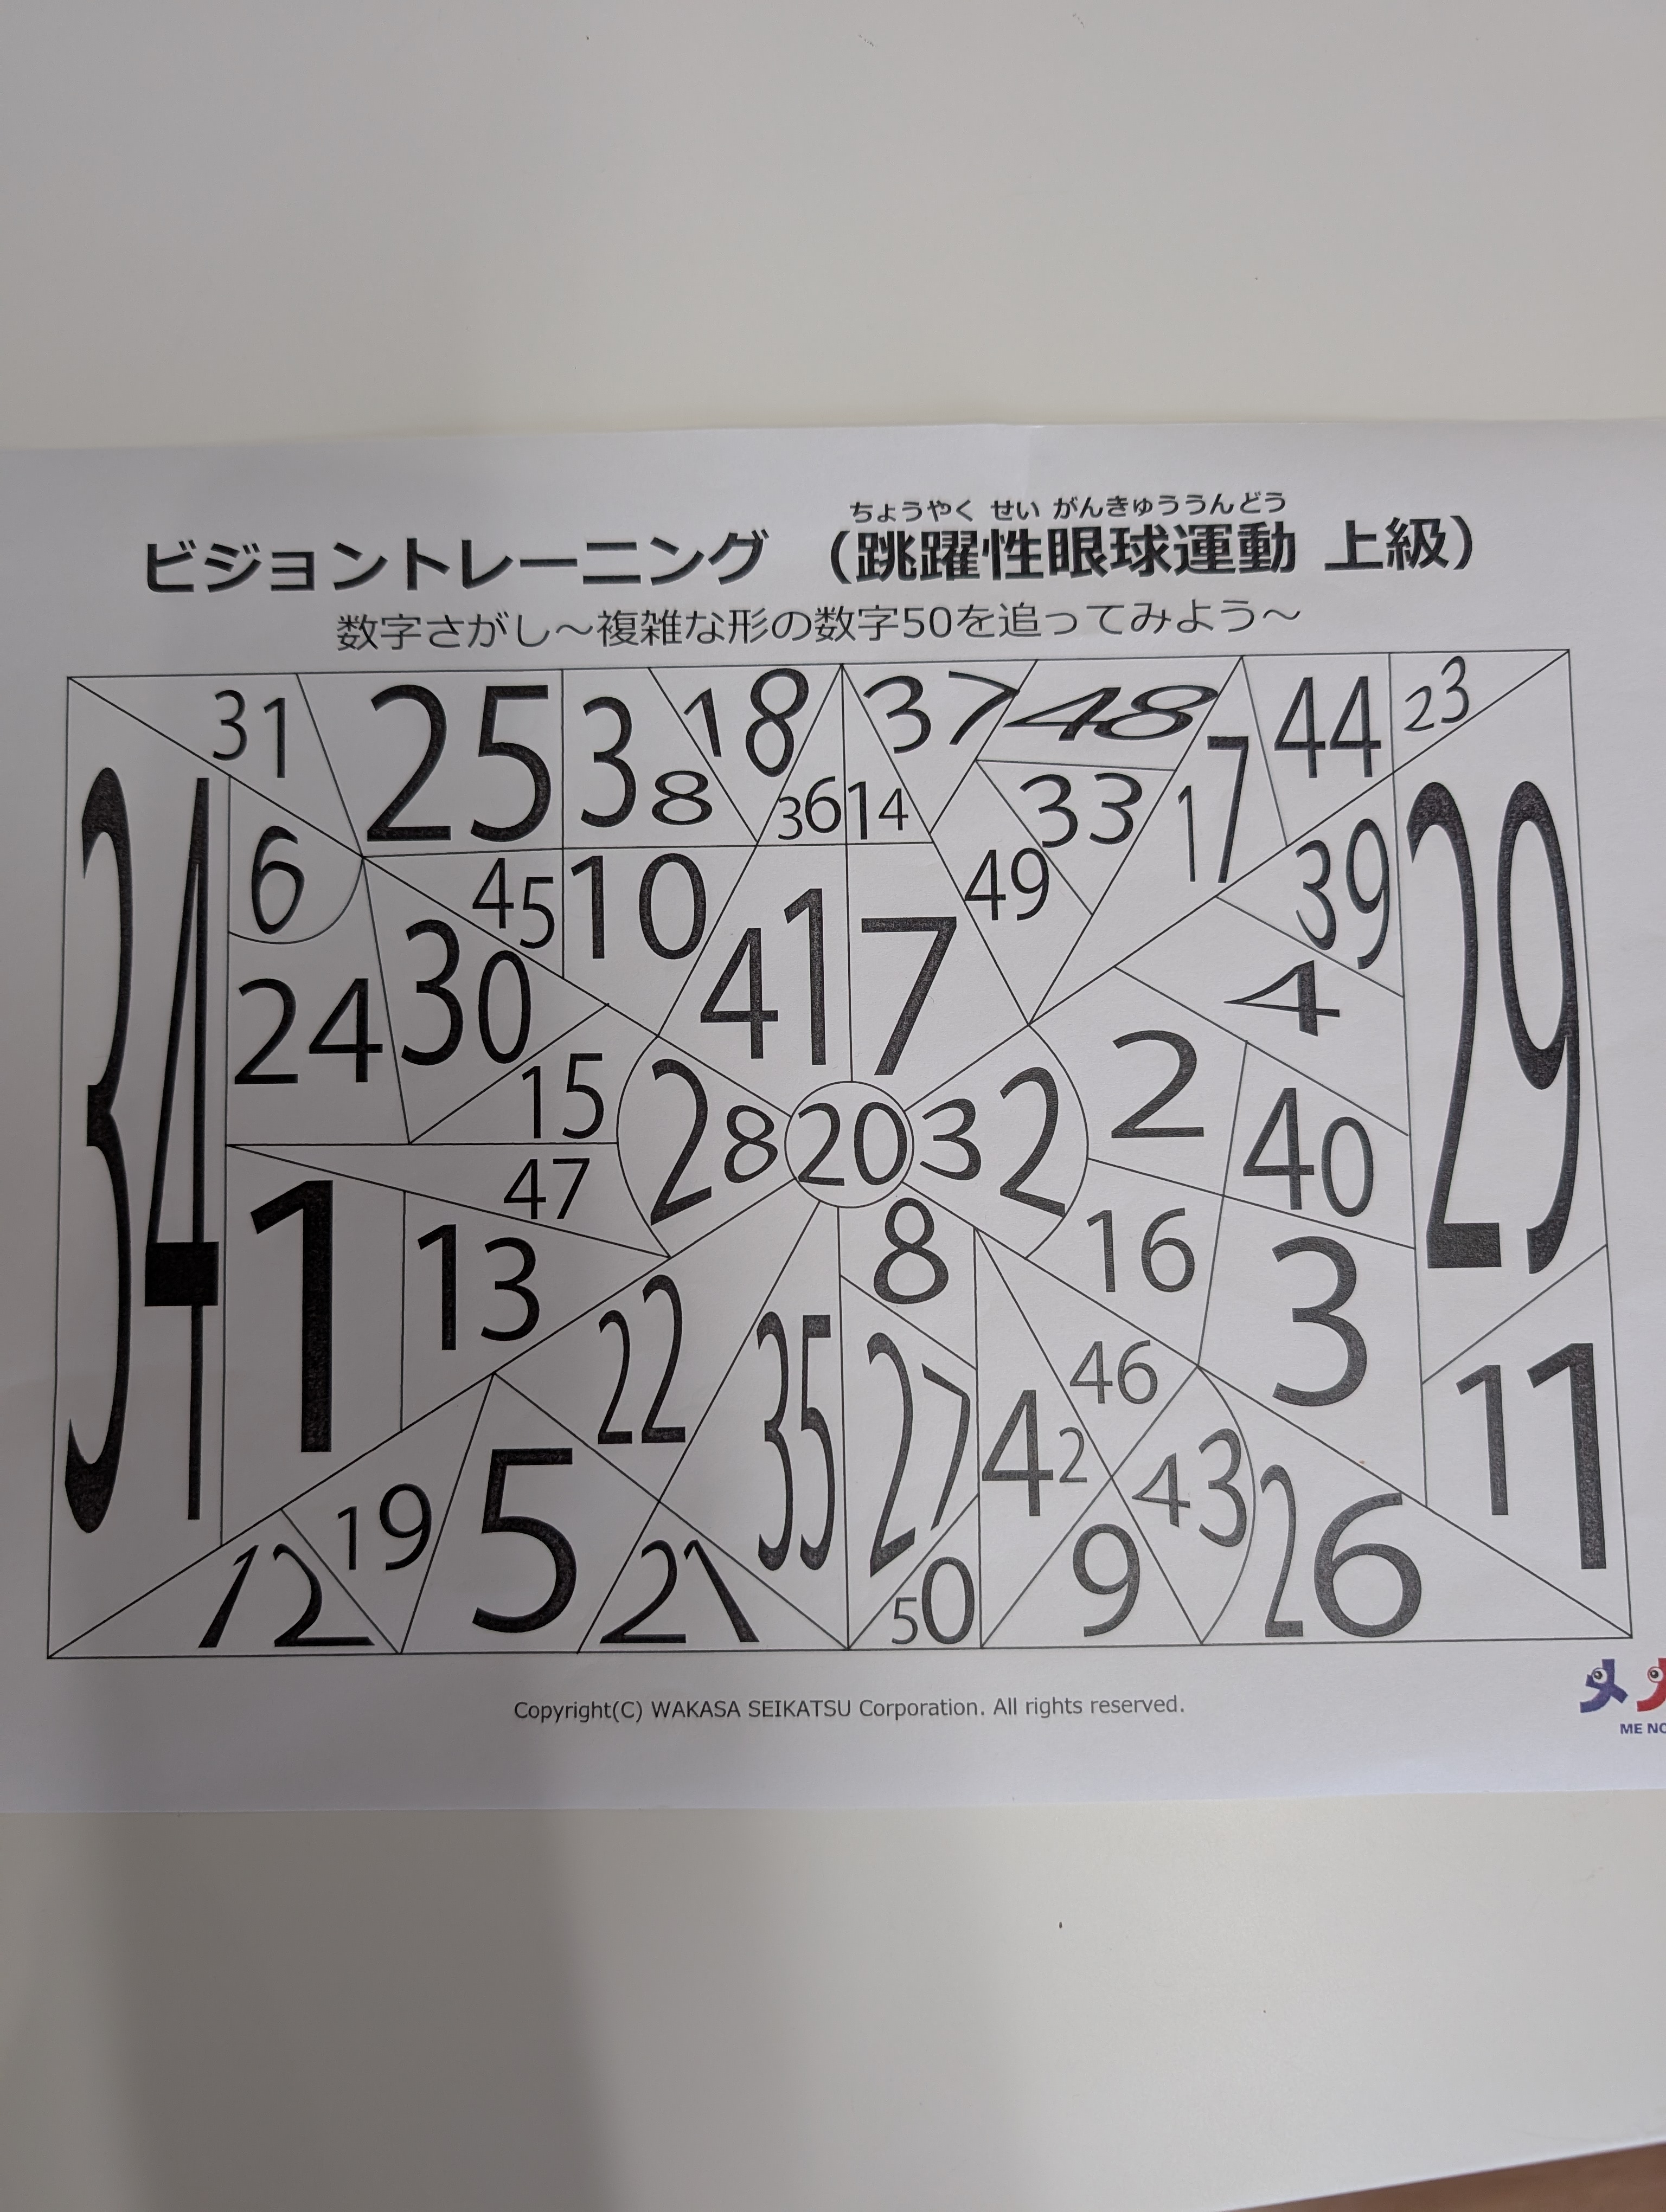 ちょうやく せい がんきゅううんどう
ビジョントレーニング （跳躍性眼球運動 上級）
数字さがし～複雑な形の数字50を追ってみよう～
31 25 38 18 37 48 44 23
36 14 33 17
34 6 45 10 49 39 29
24 30 41 7 4
15 28 20 32 2 40
47
1 13 22 35 8 16 3
27 46 11
19 5 42 43 26
12 21 50 9
Copyright(C) WAKASA SEIKATSU Corporation. All rights reserved.